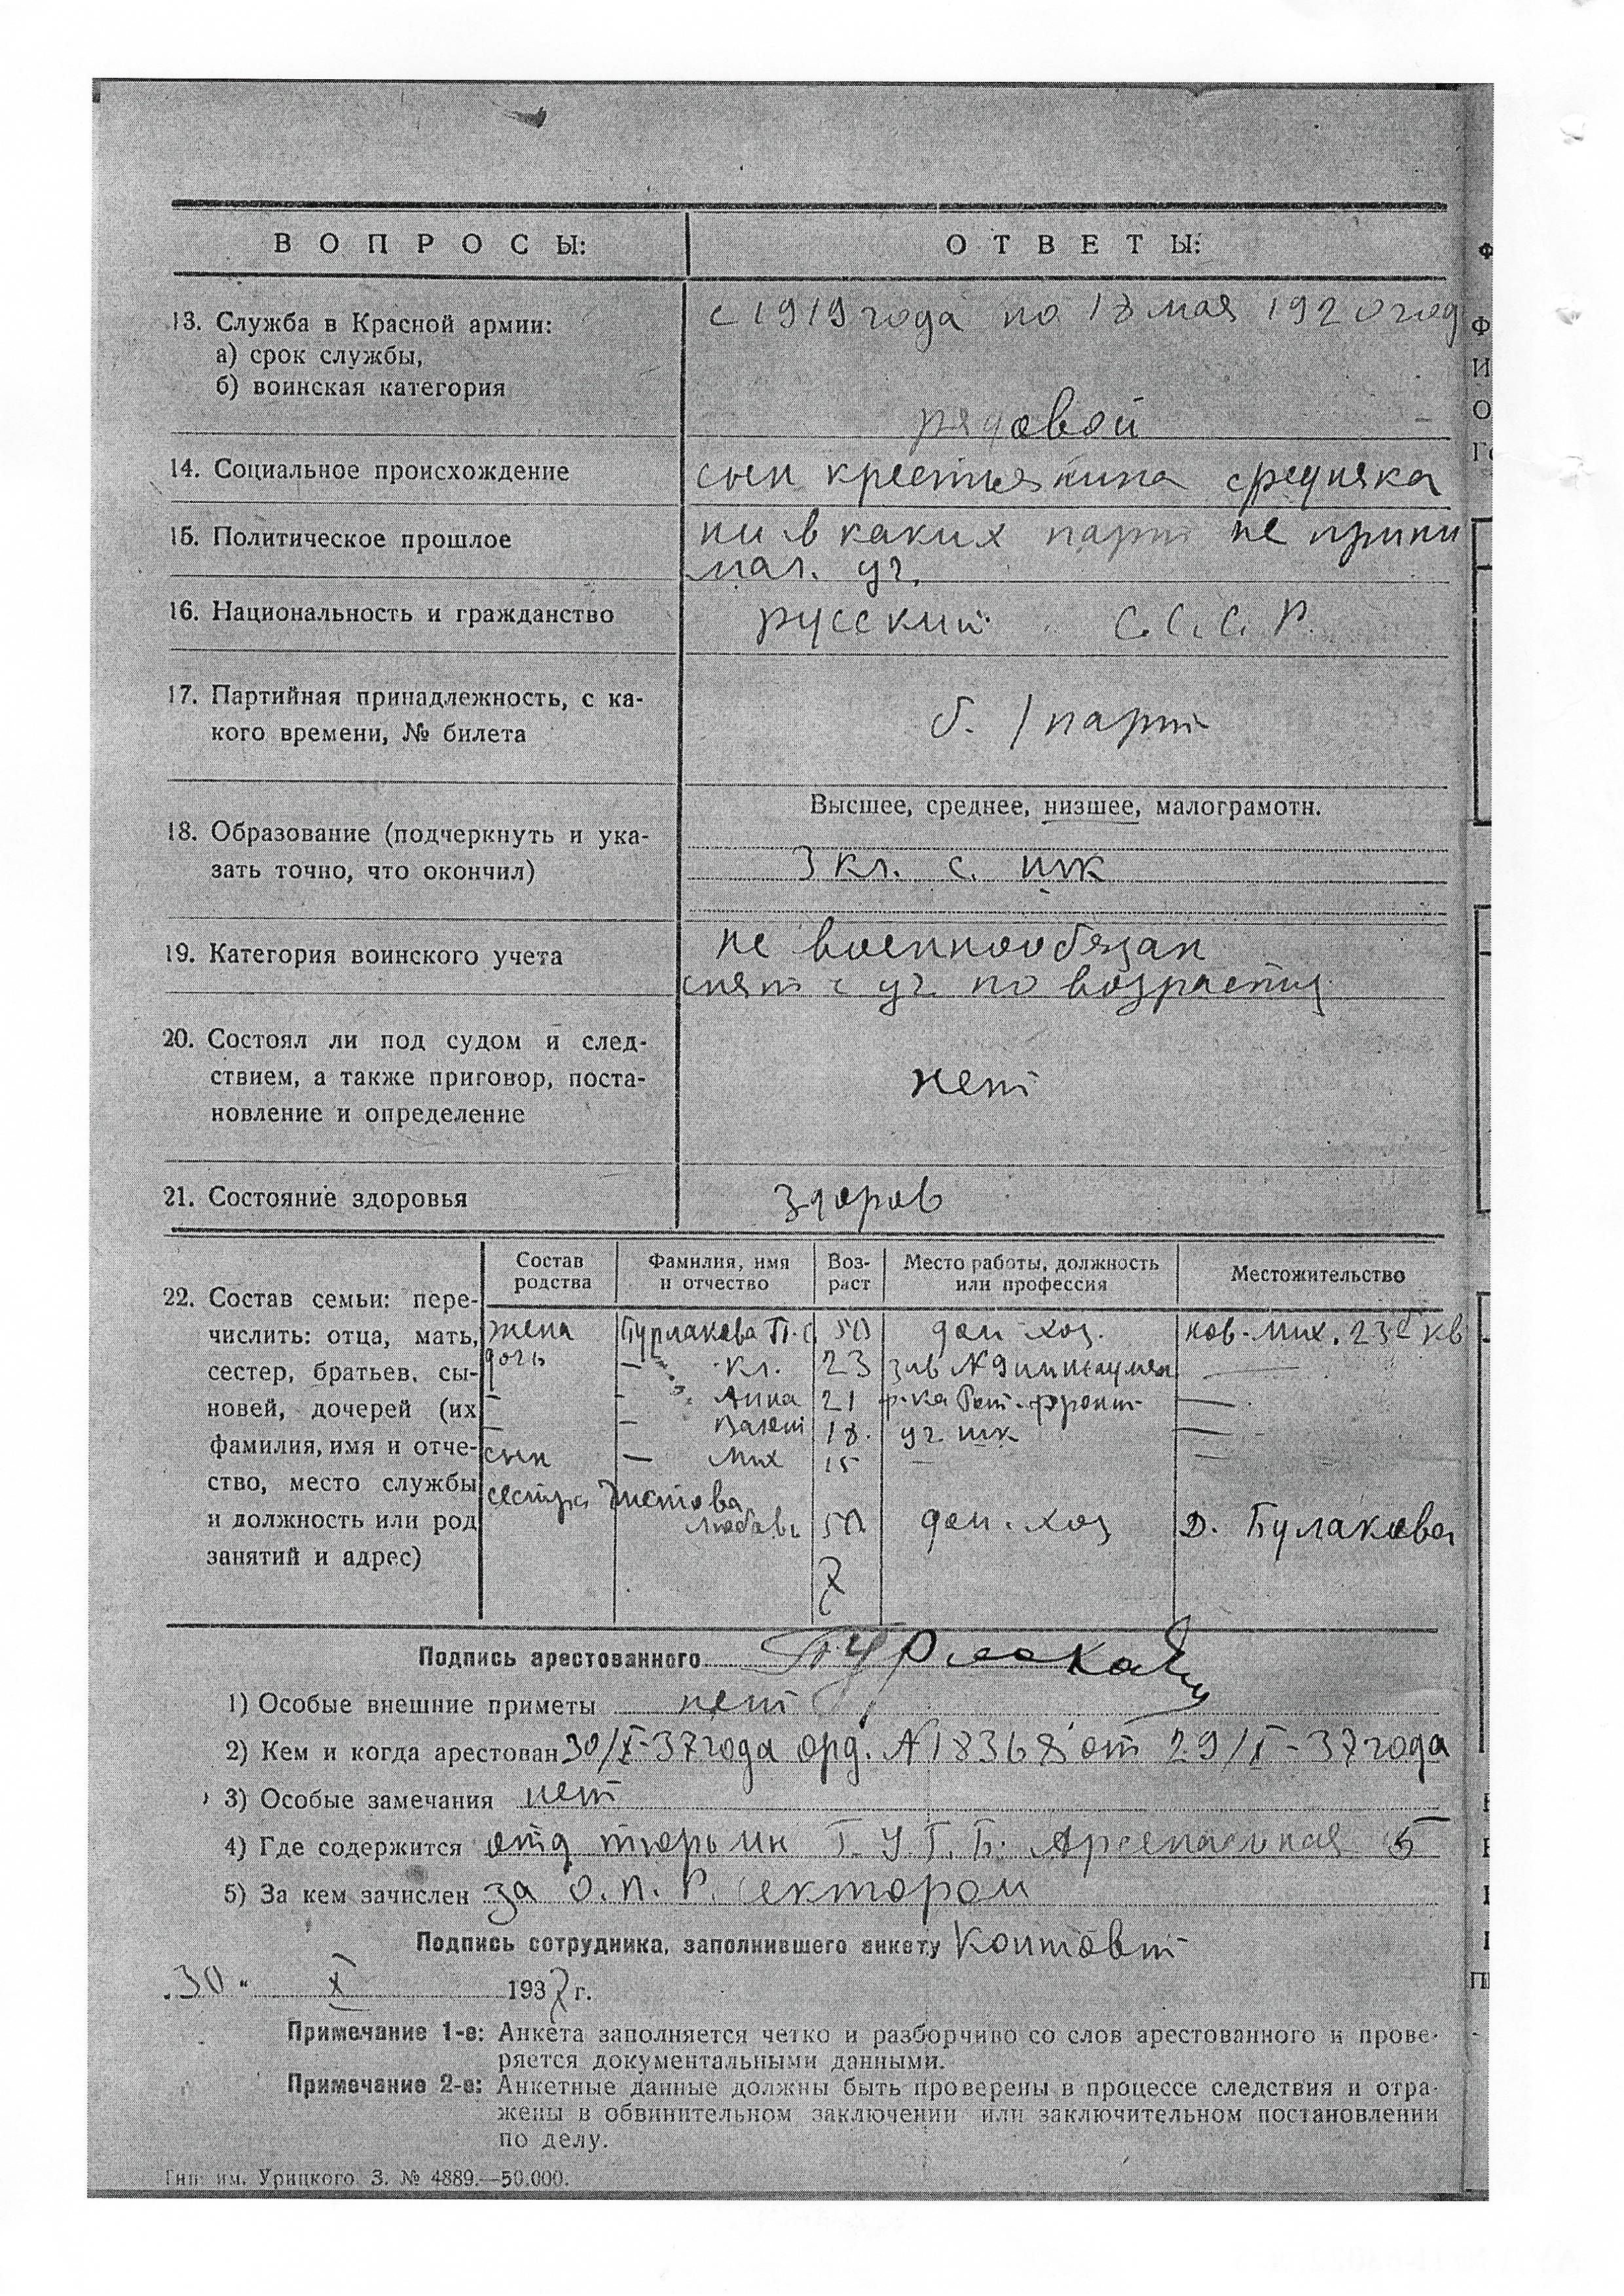 ВОПРОСЫ:
ОТВЕТЫ:
13. Служба в Красной армии:
а) срок службы,
б) воинская категория
с 1919 года по 18 мая 1920 год
рядовой
14. Социальное происхождение
сын крестьянина средняка
15. Политическое прошлое
ни в каких парт не прини
мал. уч.
16. Национальность и гражданство
русский С.С.С.Р.
17. Партийная принадлежность, с ка-
кого времени, № билета
б./парт
18. Образование (подчеркнуть и ука-
зать точно, что окончил)
Высшее, среднее, низшее, малограмотн.
3 кл. с. шк
19. Категория воинского учета
не военнообязан
снят с уч. по возрасту
20. Состоял ли под судом и след-
ствием, а также приговор, поста-
новление и определение
нет
21. Состояние здоровья
здоров
22. Состав семьи: пере-
числить: отца, мать,
сестер, братьев, сы-
новей, дочерей (их
фамилия, имя и отче-
ство, место службы
и должность или род
занятий и адрес)
Состав родства
Фамилия, имя и отчество
Воз-раст
Место работы, должность или профессия
Местожительство
жена Бурлакова П.С 50 дом-хоз. нов-Мих. 23 кв
дочь — Кл. 23 зав №9
— — Анна 21 р-ка Рот-фронт —
— Вален 18. уч. шк —
сын — Мих 15 —
сестра
Любовь 50 дом.хоз Д. Булакова
7
Подпись арестованного Бурлаков
1) Особые внешние приметы нет
2) Кем и когда арестован 30/X-37 года орд. №18368 от 29/X-37 года
3) Особые замечания нет
4) Где содержится отд тюрьми Г.У.Г.Б. Арсенальная 5
5) За кем зачислен за О.П.Р. сектором
Подпись сотрудника, заполнившего анкету
„30“ X 1937 г.
Примечание 1-е: Анкета заполняется четко и разборчиво со слов арестованного и прове-
ряется документальными данными.
Примечание 2-е: Анкетные данные должны быть проверены в процессе следствия и отра-
жены в обвинительном заключении или заключительном постановлении
по делу.
Тип. им. Урицкого. З. № 4889.—50.000.